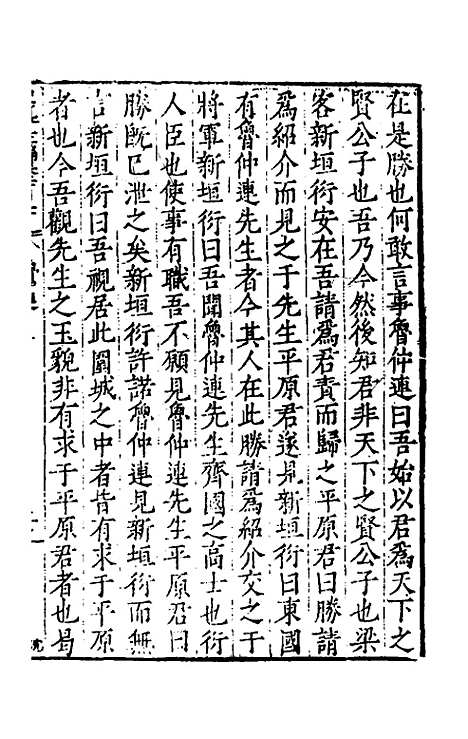 在是勝也何敢言事魯仲連曰吾始以君爲天下之
賢公子也吾乃今然後知君非天下之賢公子也梁
客新垣衍安在吾請爲君責而歸之平原君曰勝請
爲紹介而見之于先生平原君遂見新垣衍曰東國
有魯仲連先生者今其人在此勝請爲紹介交之于
將軍新垣衍曰吾聞魯仲連先生齊國之高士也衍
人臣也使事有職吾不願見魯仲連先生平原君曰
勝既已泄之矣新垣衍許諾魯仲連見新垣衍而無
言新垣衍曰吾視居此圍城之中者皆有求于平原
者也今吾觀先生之玉貌非有求于平原君者也曷